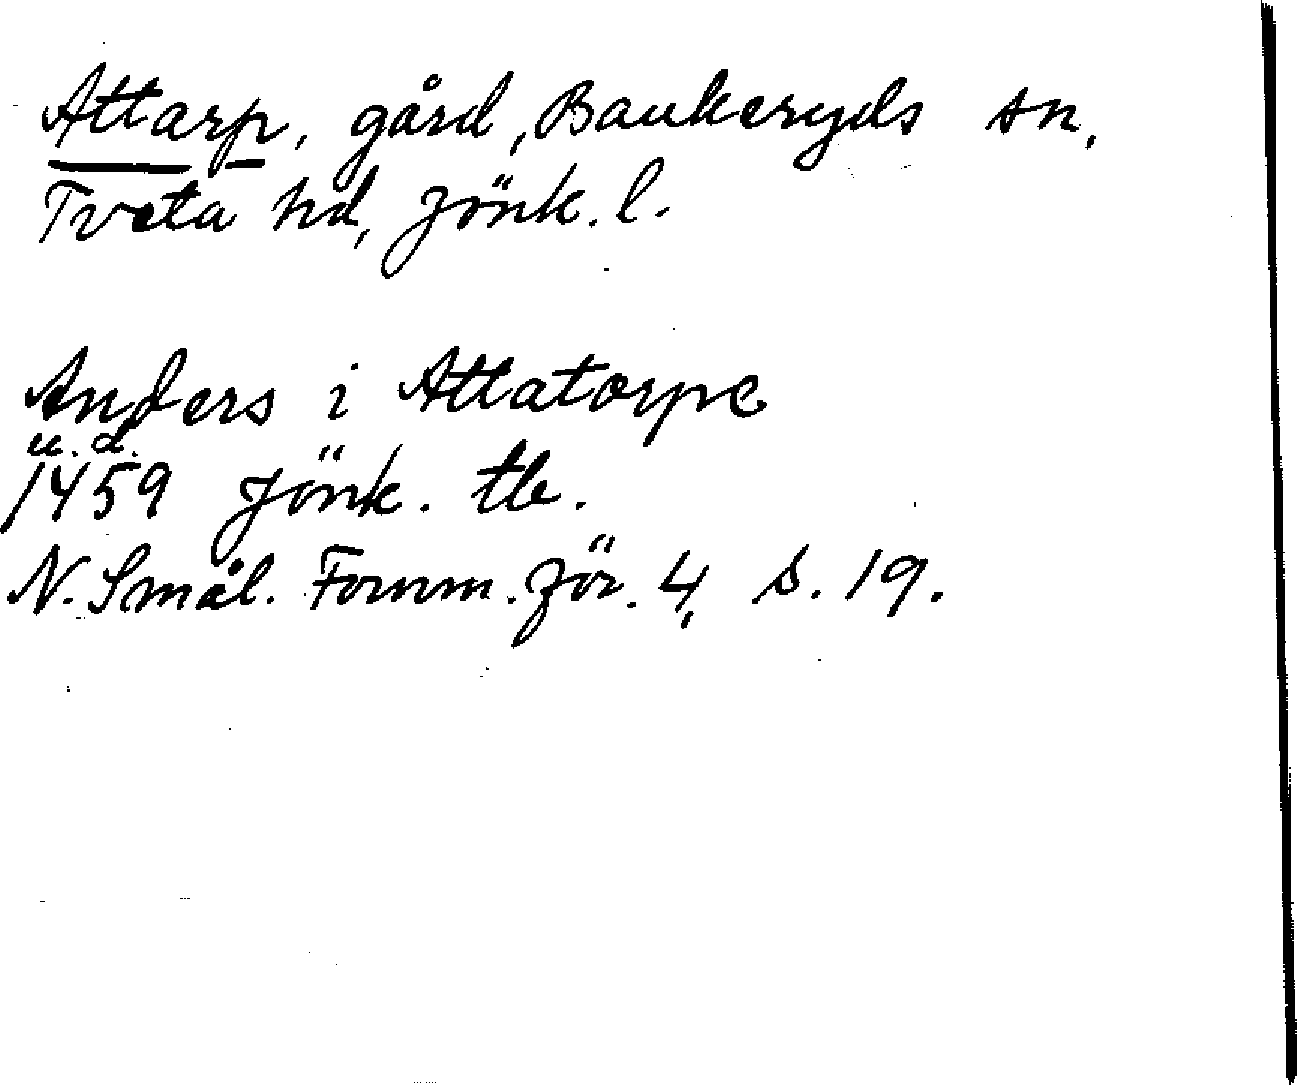 Attarp, gård, Bankeryds sn,
Tveta hd, Jönk. l.
Anders i Attatorpe
u. d.
1459 Jönk. tb.
N. Smål. Fornm. för. 4, s. 19.